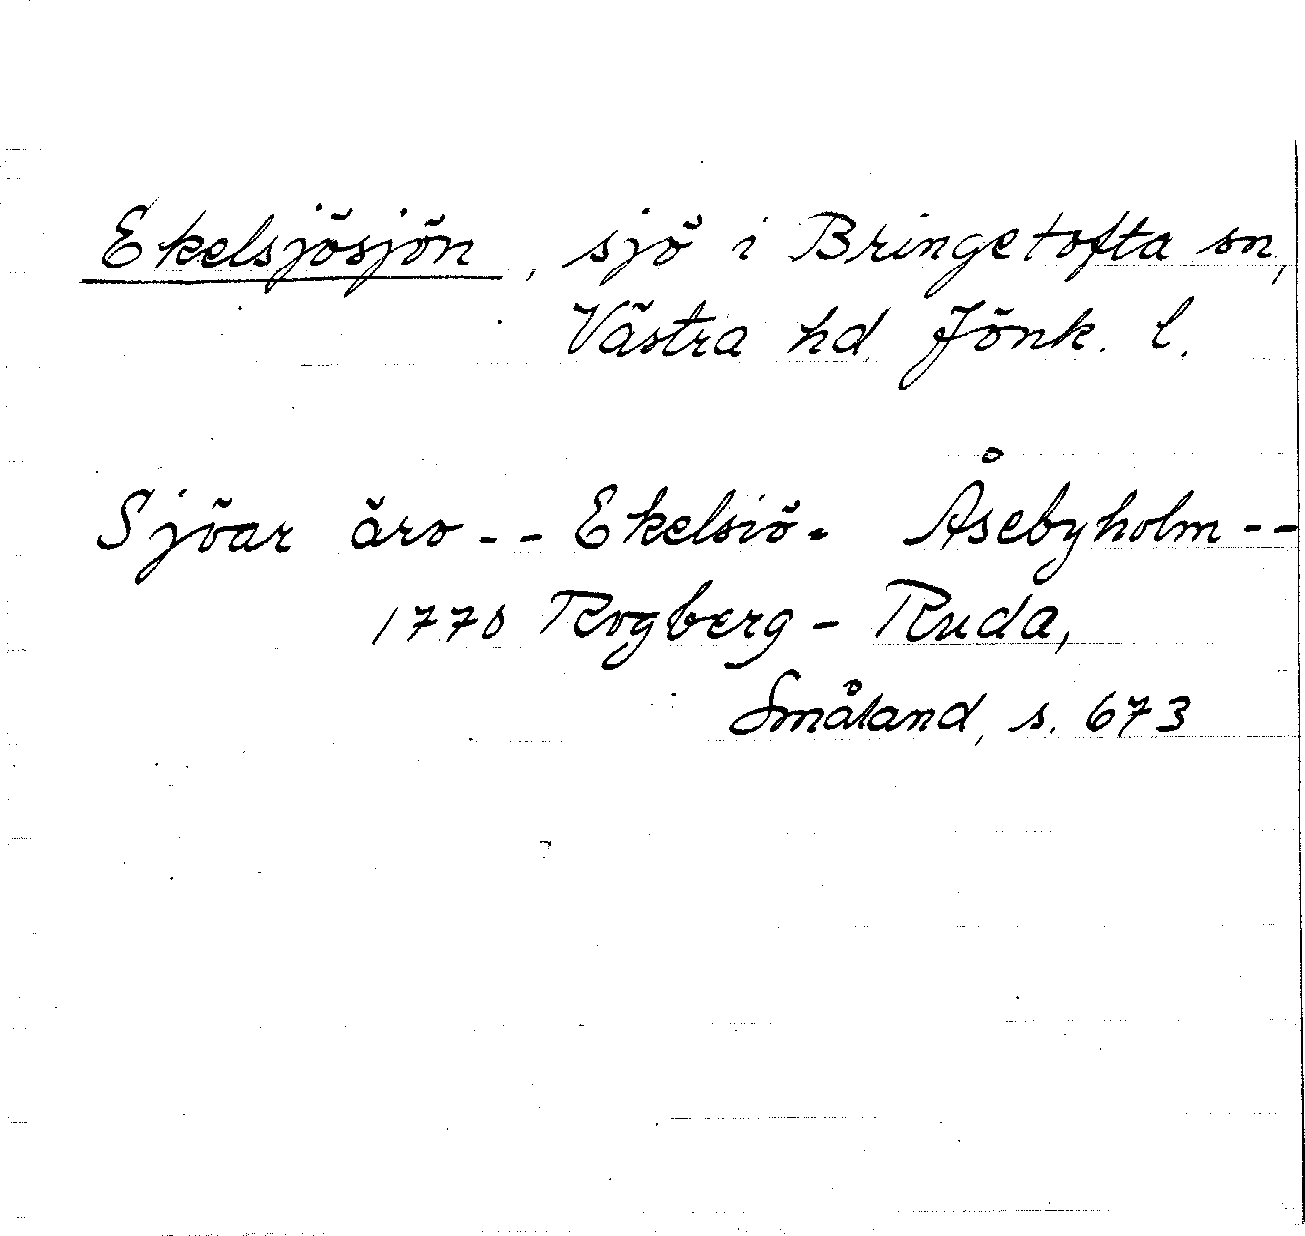 Ekelsjösjön, sjö i Bringetofta sn,
Västra hd Jönk. l.
Sjöar äro -- Ekelsiö. Åsebyholm --
1770 Rogberg - Ruda,
Småland, s. 673